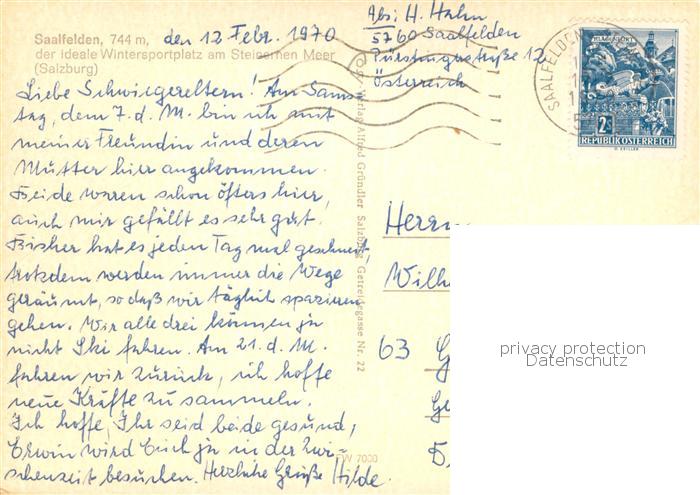 Saalfelden, 744 m,
der ideale Wintersportplatz am Steinernen Meer
(Salzburg)
den 12. Febr. 1970
Abs: H. Hahn
5760 Saalfelden
Pürstingerstraße 12
Österreich
SAALFELDEN
KLAGENFURT
2S
REPUBLIK ÖSTERREICH
Liebe Schwiegereltern! Am Sams-
tag, dem 7. d. M. bin ich mit
meiner Freundin und deren
Mutter hier angekommen.
Beide waren schon öfters hier,
auch mir gefällt es sehr gut.
Bisher hat es jeden Tag mal geschneit,
trotzdem werden immer die Wege
geräumt, so daß wir täglich spazieren
gehen. Wir alle drei können ja
nicht Ski fahren. Am 21. d. M.
fahren wir zurück, ich hoffe
neue Kräfte zu sammeln.
Ich hoffe, Ihr seid beide gesund,
Erwin wird Euch ja in der Zwi-
schenzeit besuchen. Herzliche Grüße Hilde.
Verlag Alfred Gründler Salzburg Getreidegasse Nr. 22
W 7000
Herrn
Wilh
63 G
privacy protection
Datenschutz